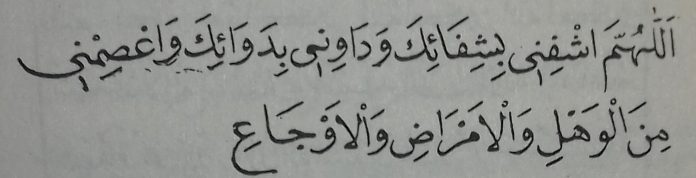 اَللّٰهُمَّ اشْفِنِي بِشِفَائِكَ وَدَاوِنِي بِدَوَائِكَ وَاعْصِمْنِي
مِنَ الْوَهَلِ وَالْاَمْرَاضِ وَالْاَوْجَاعِ